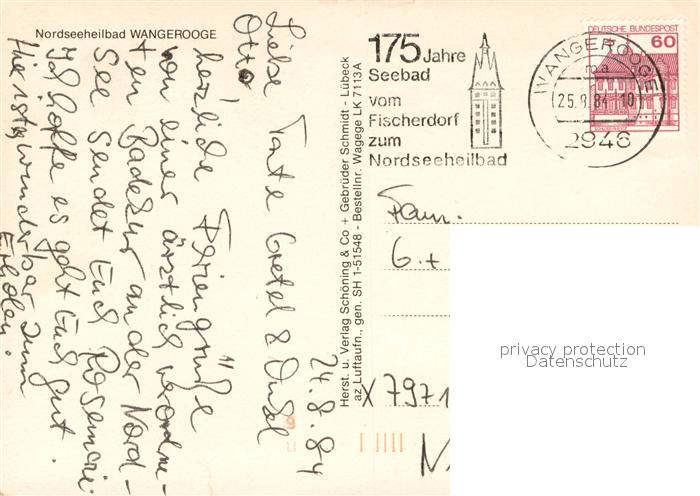 Nordseeheilbad WANGEROOGE
24.8.84
Liebe Tante Gretel & Onkel
Otto
herzliche Feriengrüße
von einer ärztlich verordne-
ten Badekur an der Nord-
see sendet Euch Rosemarie.
Ich hoffe es geht Euch gut.
Hier ist es wunderbar zum
Erholen.
Herst. u. Verlag Schöning & Co + Gebrüder Schmidt - Lübeck
az Luftaufn., gen. SH 1-51548 - Bestellnr. Wagege LK 7113A
175 Jahre
Seebad
vom
Fischerdorf
zum
Nordseeheilbad
WANGEROOGE
ma
25.8.84 10
2946
DEUTSCHE BUNDESPOST
60
Fam.
G. +
X 7971
N
privacy protection
Datenschutz